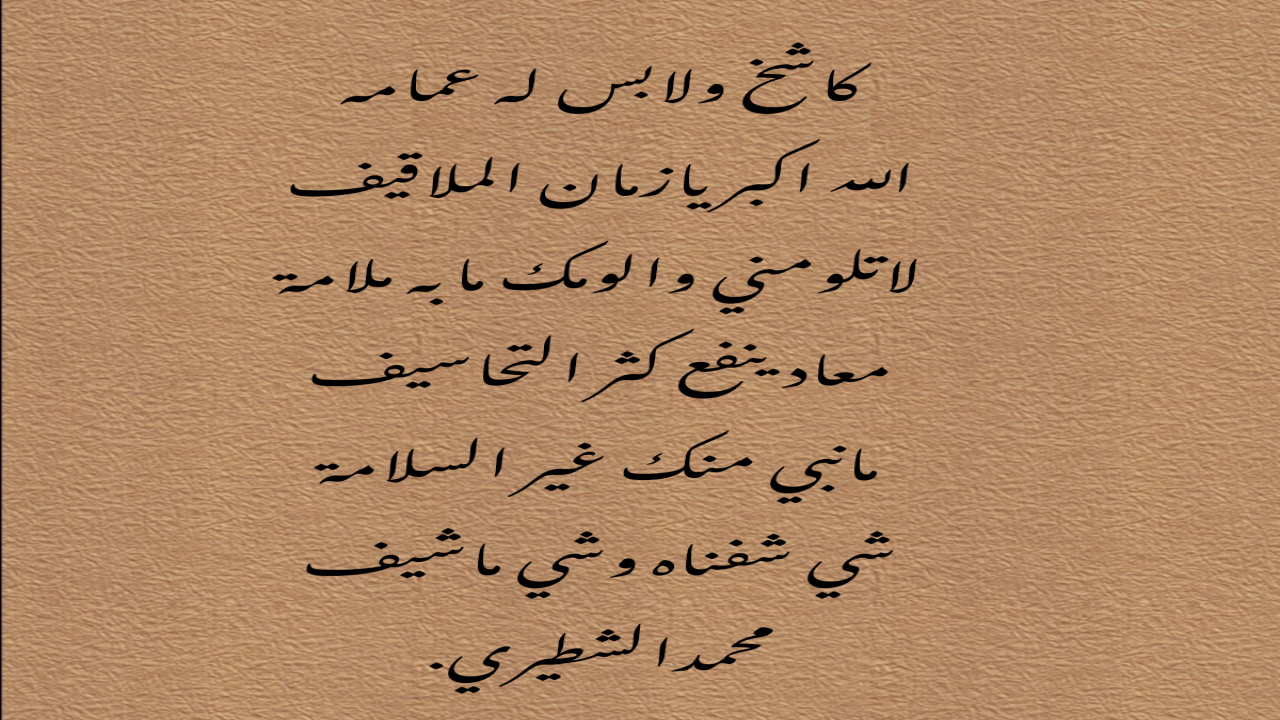 كاشخ ولابس له عمامه
الله اكبر يازمان الملاقيف
لاتلومني والومك مابه ملامة
معاد ينفع كثر التحاسيف
مانبي منك غير السلامة
شي شفناه وشي ماشيف
محمد الشطيري.